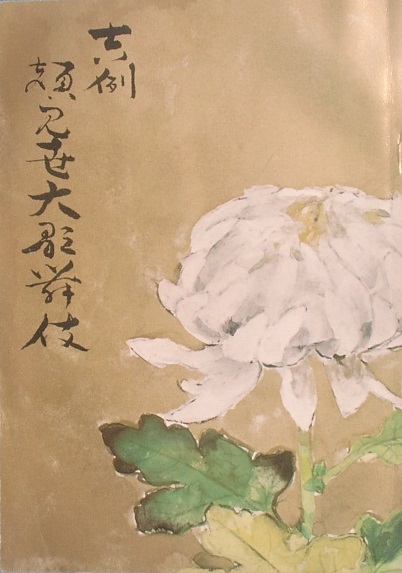 吉例
顔見世大歌舞伎